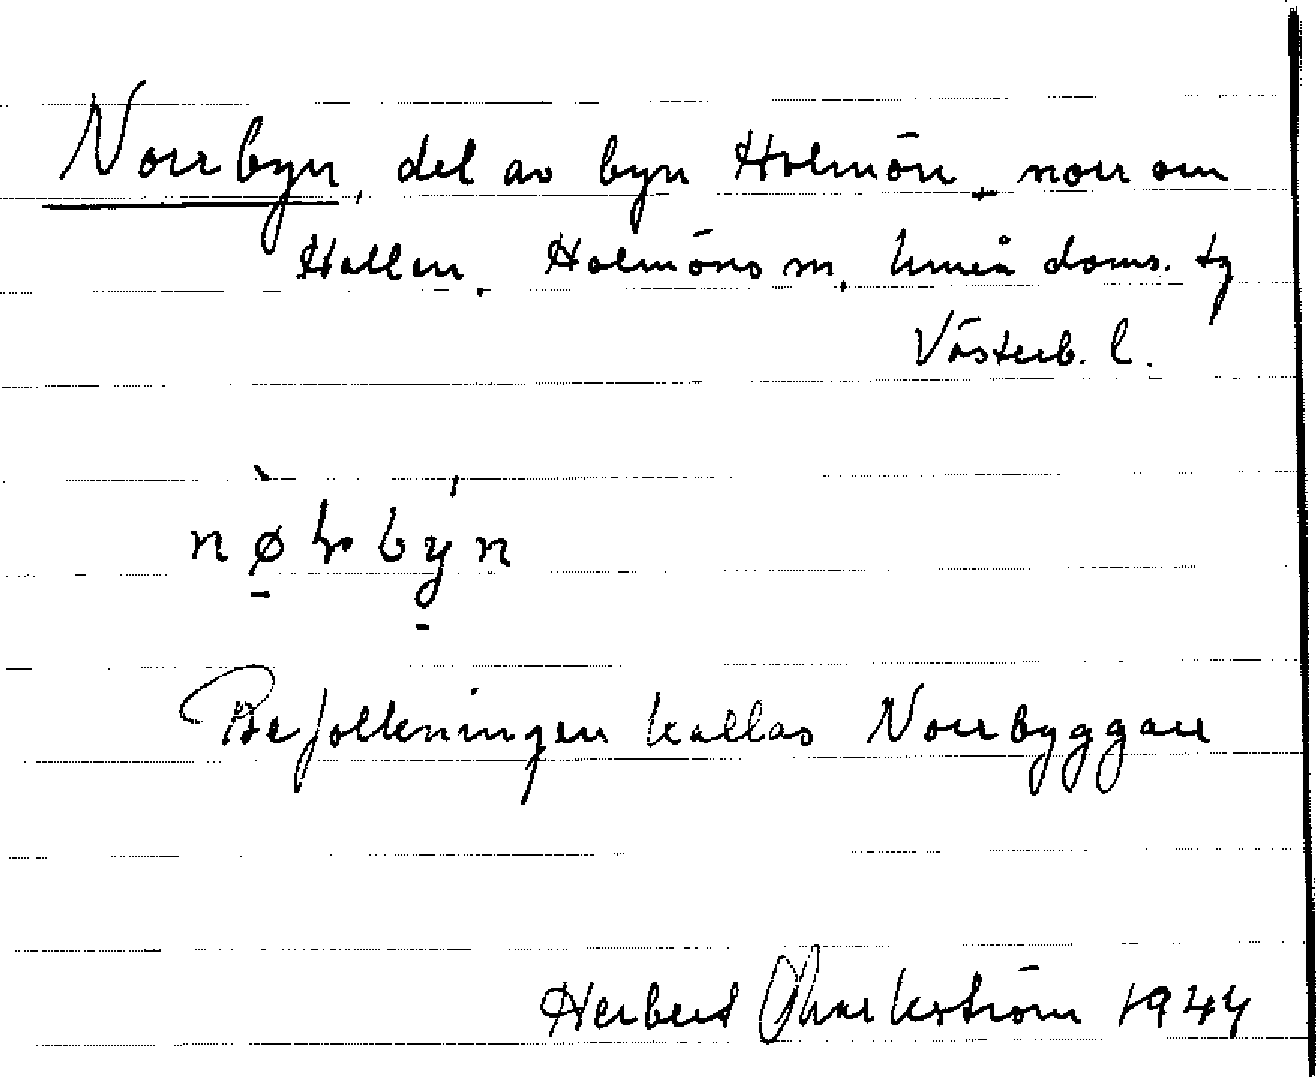 Norrbyn, del av byn Holmön, norr om
Hallen. Holmöns sn, Umeå doms. tg
Västerb. l.
Befolkningen kallas Norrbyggare
Herbert Markström 1944